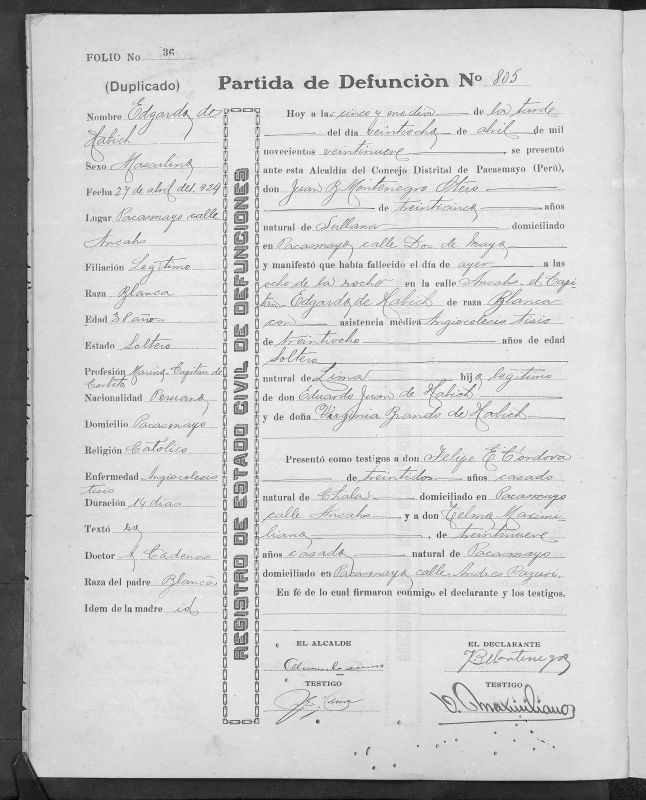 FOLIO No 36
(Duplicado)
Partida de Defunciòn Nº 805
Nombre Edgardo de
Habich
Sexo Masculino
Fecha 27 de abril del 929
Lugar Pacasmayo calle
Ancahs
Filiación Legítimo
Raza Blanca
Edad 38 años
Estado Soltero
Profesión Marino-Capitan de
Corbeta
Nacionalidad Peruana
Domicilio Pacasmayo
Religión Católico
Enfermedad Angiocolecis
tisis
Duración 14 dias
Textó
Doctor A Cadenas
Raza del padre Blanca
Idem de la madre id
REGISTRO DE ESTADO CIVIL DE DEFUNCIONES
Hoy a las cinco y media de la tarde
del día veintiocho de abril de mil
novecientos veintinueve, se presentó
ante esta Alcaldía del Concejo Distrital de Pacasmayo (Perú),
don Juan B Montenegro Otero
de treinticinco años
natural de Sullana domiciliado
en Pacasmayo calle Dos de Mayo
y manifestó que había fallecido el día de ayer a las
ocho de la noche en la calle Ancahs el Capi
tan Edgardo de Habich de raza Blanca
con asistencia médica Angiocolecis tisis
de treintiocho años de edad
Soltero
natural de Lima hijo legitimo
de don Eduardo Juan de Habich
y de doña Virginia Brando de Habich
Presentó como testigos a don Felipe E. Cordova
de treintidos años casado
natural de Chala domiciliado en Pacasmayo
calle Ancahs y a don Telmo Maximi-
liano, de treintinueve
años casado natural de Pacasmayo
domiciliado en Pacasmayo calle Andres Razuri.
En fé de lo cual firmaron conmigo el declarante y los testigos.
EL ALCALDE
EL DECLARANTE
JBMontenegro
TESTIGO
TESTIGO
Maximiliano